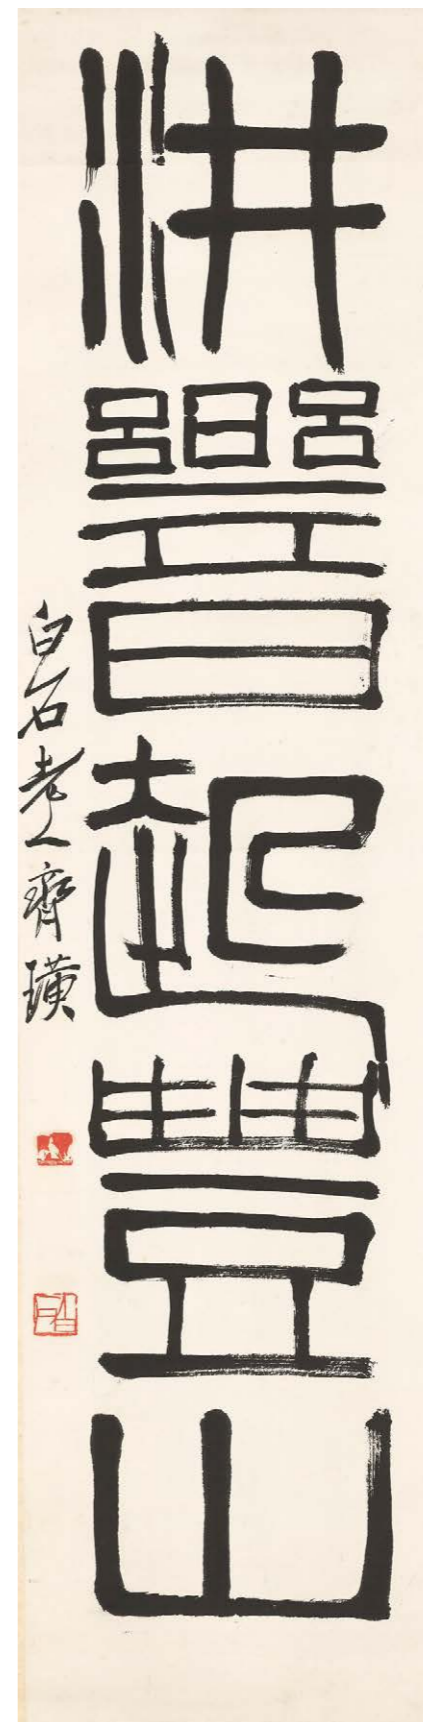 洪響起豐山
白石老人齊璜